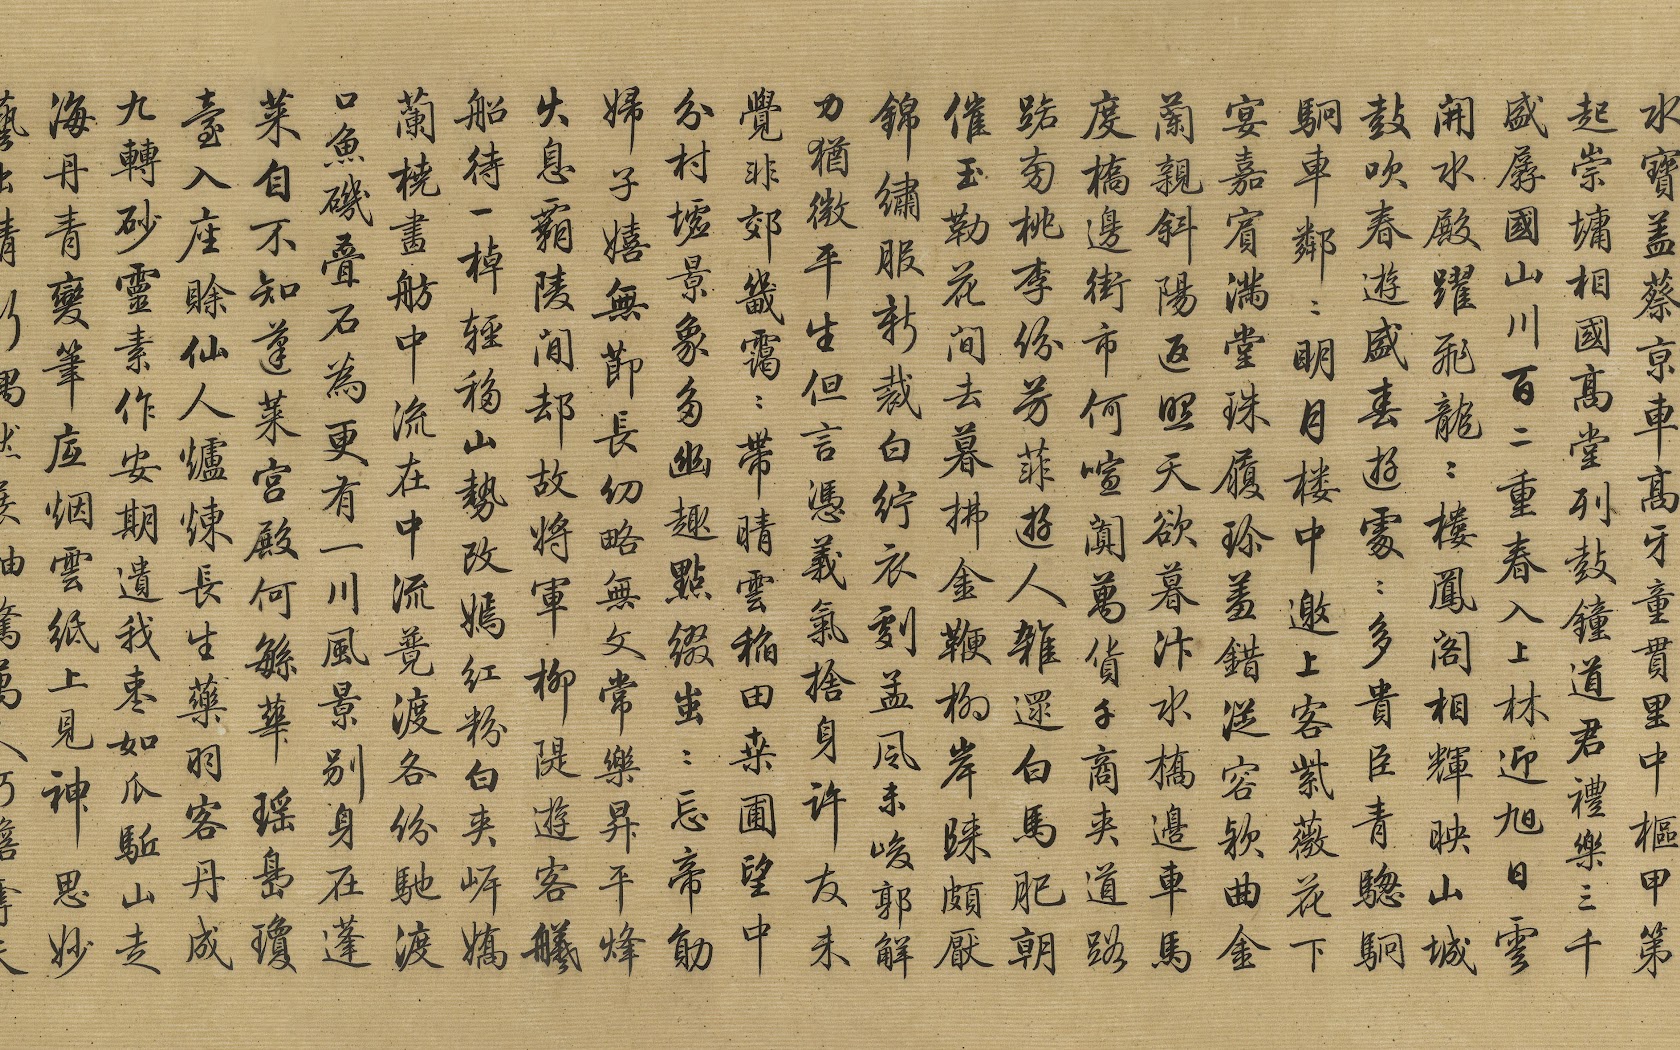 水寶盖蔡京車髙牙童貫里中樞甲第
起崇墉相國髙堂列鼓鐘道君禮樂三千
盛孱國山川百二重春入上林迎旭日雲
開水殿躍飛龍〻樓鳳阁相輝映山城
鼓吹春遊盛春遊處〻多貴臣青驄駉
駉車鄰〻明月楼中邀上客紫薇花下
宴嘉賓滿堂珠履珍羞錯從容欵曲金
蘭親斜陽返照天欲暮汴水橋邉車馬
度橋邊街市何喧闐萬貨千商夾道路
路旁桃李份芳菲逰人雜遝白馬肥朝
催玉勒花间去暮拂金鞭栁岸歸頗厭
錦繡服新裁白紵衣劇孟风未峻郭解
力猶微平生但言憑義氣捨身許友未
覺非郊畿靄〻帶晴雲稲田桒圃望中
分村墟景象多幽趣點缀出〻忘帝勛
婦子嬉無節長幼略無文常樂昇平烽
火息霸陵间却故將軍柳隄遊客艤
船待一棹輕移山勢改嫣红粉白夹岍嬌
蘭橈畵舫中流在中流競渡各份馳渡
口魚磯叠石為更有一川風景别身在蓬
莱自不知蓬莱宮殿何繇華瑶島瓊
臺入座賒仙人爐煉長生藥羽客丹成
九轉砂靈素作安期遺我枣如瓜駈山走
海丹青變筆底烟雲紙上見神思妙